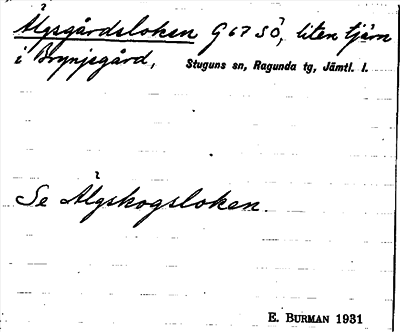 Älgsgårdsloken G 67 SÖ, liten tjärn
i Brynjegård, Stuguns sn, Ragunda tg, Jämtl. l.
Se Älgskogsloken.
E. BURMAN 1931